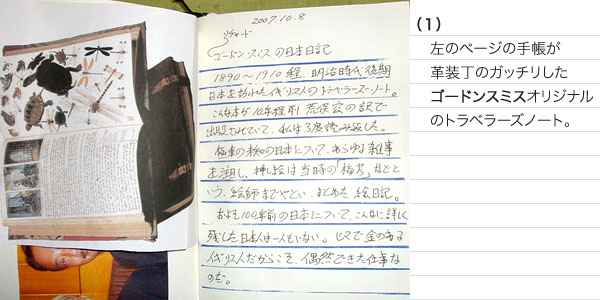 2007.10.8
リチャード
ゴードン・スミスの日本日記
1890〜1910程、明治時代後期
日本を訪れたイギリス人のトラベラーズ・ノート。
こんな本が10年程前 荒俣宏の訳で
出版されていて、私は3度読み返した。
極東の未知の日本について、あらゆる雑事
を注記し、挿し絵は当時の「梅芳」などと
いう、絵師までやとい、まとめた絵日記。
およそ100年前の日本について、こんなに詳しく
残した日本人は一人もいない。ヒマで金のある
イギリス人だからこそ、偶然できた仕事な
のだ。
(1)
左のページの手帳が
革装丁のガッチリした
ゴードンスミスオリジナル
のトラベラーズノート。